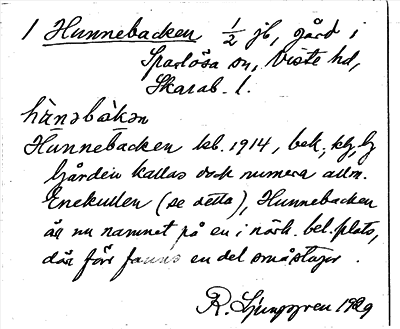 1 Hunnebacken 1/2 jb, gård i
Sparlösa sn, Viste hd,
Skarab. l.
hànəbàkən
Hunnebacken kb. 1914, bek.
Gården kallas dock numera allm.
Enekullen (se detta), Hunnebacken
är nu namnet på en i närh. bel. plats,
där förr fanns en del småstugor.
R. Ljunggren 1929